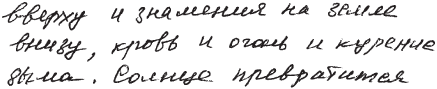 вверху и знамения на земле
внизу, кровь и огонь и курение
дыма. Солнце превратится